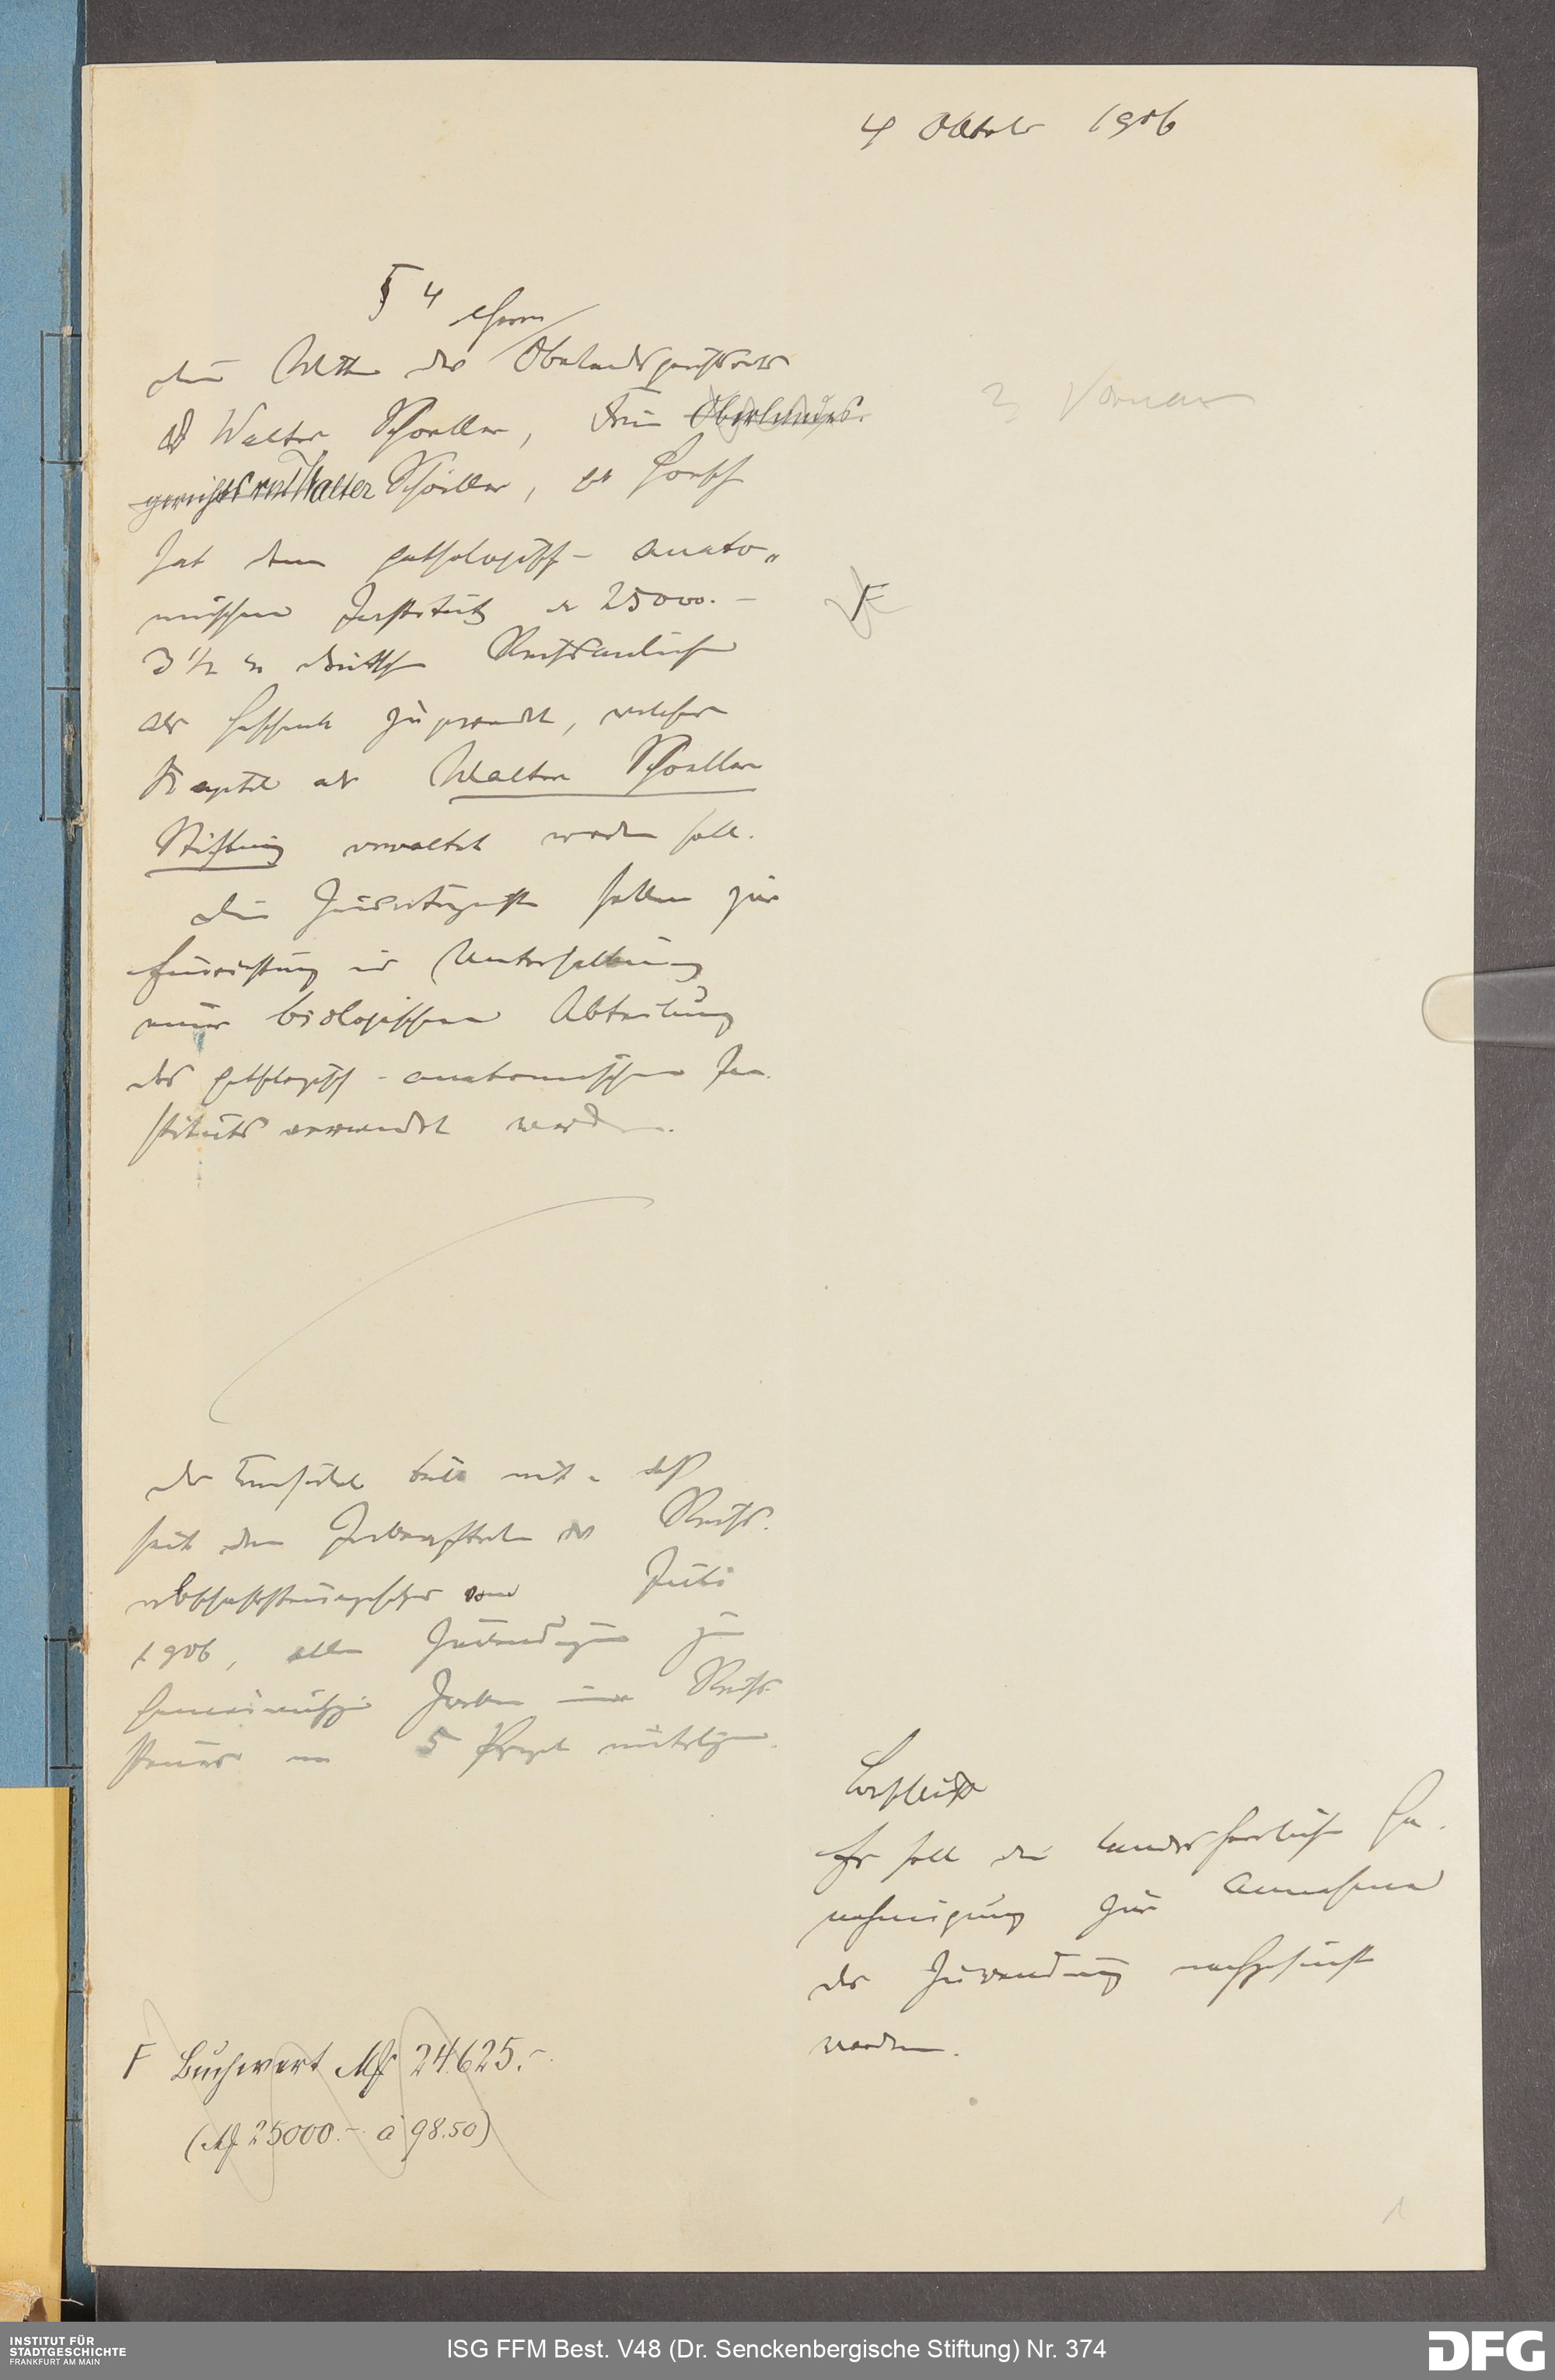 4 Oktober 1906
§ 4
Herrn
Die Mutter des Oberlandsgerichtsrats
Dr Walter Schoeller, Frau Oberlandes-
gerichtsrat Walter Schoeller, geb
hat dem pathologisch-anato-
mischen Institut M 25000.-
3 1/2 % deutsche Reichsanleihe
als Geschenk zugewandt, welches
Kapital als Walter Schoeller
Stiftung verwaltet werden soll.
Die Zinserträgnisse sollen zur
Einrichtung und Unterhaltung
einer biologischen Abteilung
des pathologisch-anatomischen In-
stituts verwendet werden.
F
Der Vorsitzende teilt mit, daß
seit dem Inkrafttreten des Reichs-
erbschaftssteuergesetzes vom Juli
1906, alle Zuwendungen zu
Gemeinnützigen Zwecken einer Reichs-
steuer von 5 Prozent unterliegen.
Beschluß
Es soll die landesherrliche Ge-
nehmigung zur Annahme
der Zuwendung nachgesucht
werden.
F Buchwert M 24625.-
(M 25000.- à 98.50)
1
INSTITUT FÜR
STADTGESCHICHTE
FRANKFURT AM MAIN
ISG FFM Best. V48 (Dr. Senckenbergische Stiftung) Nr. 374
DFG